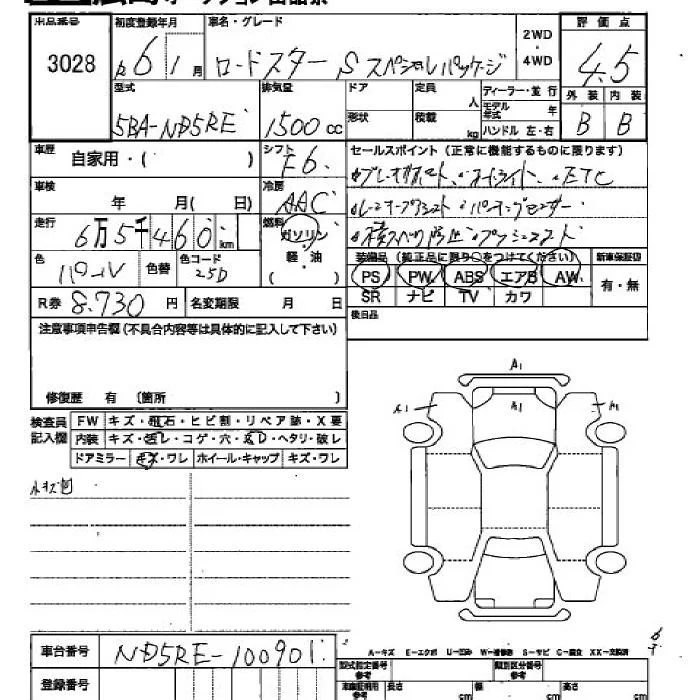 出品番号 初度登録年月 車名・グレード 2WD・4WD 評価点
3028 R6 1月 ロードスター S スペシャルパッケージ 4.5
型式 排気量 ドア 定員 人 ディーラー・並行 外装 内装
5BA-ND5RE 1500cc 形状 積載 kg モデル年式 年 ハンドル 左・右 B B
車歴 自家用・( ) シフト F6 セールスポイント(正常に機能するものに限ります)
車検 年 月( 日) 冷房 AAC ETC
走行 6万5千460km 燃料 ガソリン・軽・油( )
色 パール 色替 色コード 25D 装備品(純正品に限り○をつけてください) 新車保証書
PS PW ABS エアB AW 有・無
SR ナビ TV カワ
R券 8.730円 名変期限 月 日 後日品
注意事項申告欄(不具合内容等は具体的に記入して下さい)
修復歴 有 〔箇所 〕
検査員記入欄 FW キズ・飛石・ヒビ割・リペア跡・X要
内装 キズ・スレ・コゲ・穴・ヘタリ・破レ
ドアミラー キズ・ワレ ホイール・キャップ キズ・ワレ
A1
A1 A1 A1
小キズ凹
A-キズ E-エクボ U-凹み W-補修跡 S-サビ C-腐食 XX-交換済
車台番号 ND5RE-100901
登録番号 型式指定番号 参考 類別区分番号 参考
車庫証明用 参考 長さ cm 幅 cm 高さ cm